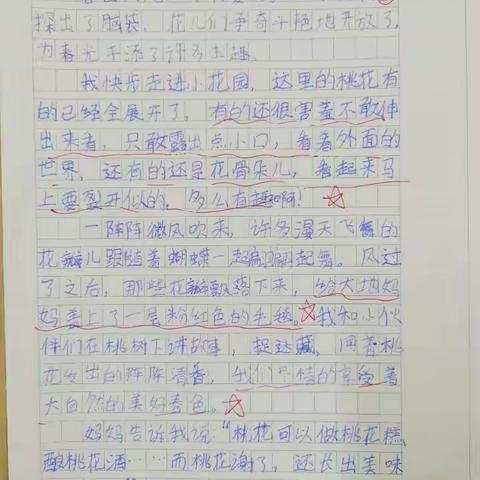 探出了脑袋，花儿们争奇斗艳地开放了，
为春光平添了许多生趣。
我快步走进小花园，这里的桃花有
的已经全展开了，有的还很害羞不敢伸
出来看，只敢露出点小口，看看外面的
世界，还有的还是花骨朵儿，看起来马
上要裂开似的，多么有趣啊！
一阵阵微风吹来，许多漫天飞舞的
花瓣儿跟随着蝴蝶一起翩翩起舞。风过
了之后，那些花瓣飘落下来，给大地妈
妈盖上了一层粉红色的毛毯。我和小伙
伴们在桃树下讲故事，捉迷藏，闻着桃
花发出的阵阵清香，我们尽情的享受着
大自然的美好春色。
妈妈告诉我说：“桃花可以做桃花糕，
酿桃花酒……而桃花谢了，还长出美味